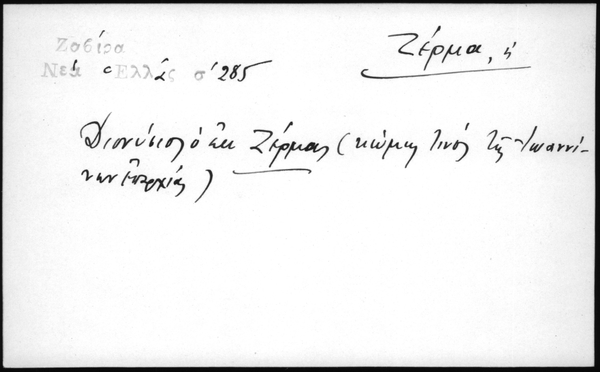 Ζαβίρα
Νέα Ἑλλὰς σ' 285
Ζέρμα, ἡ
Διονύσιος ὁ ἐκ Ζέρμας (κώμης τινὸς τῆς Ἰωαννί-
νων ἐπαρχίας)